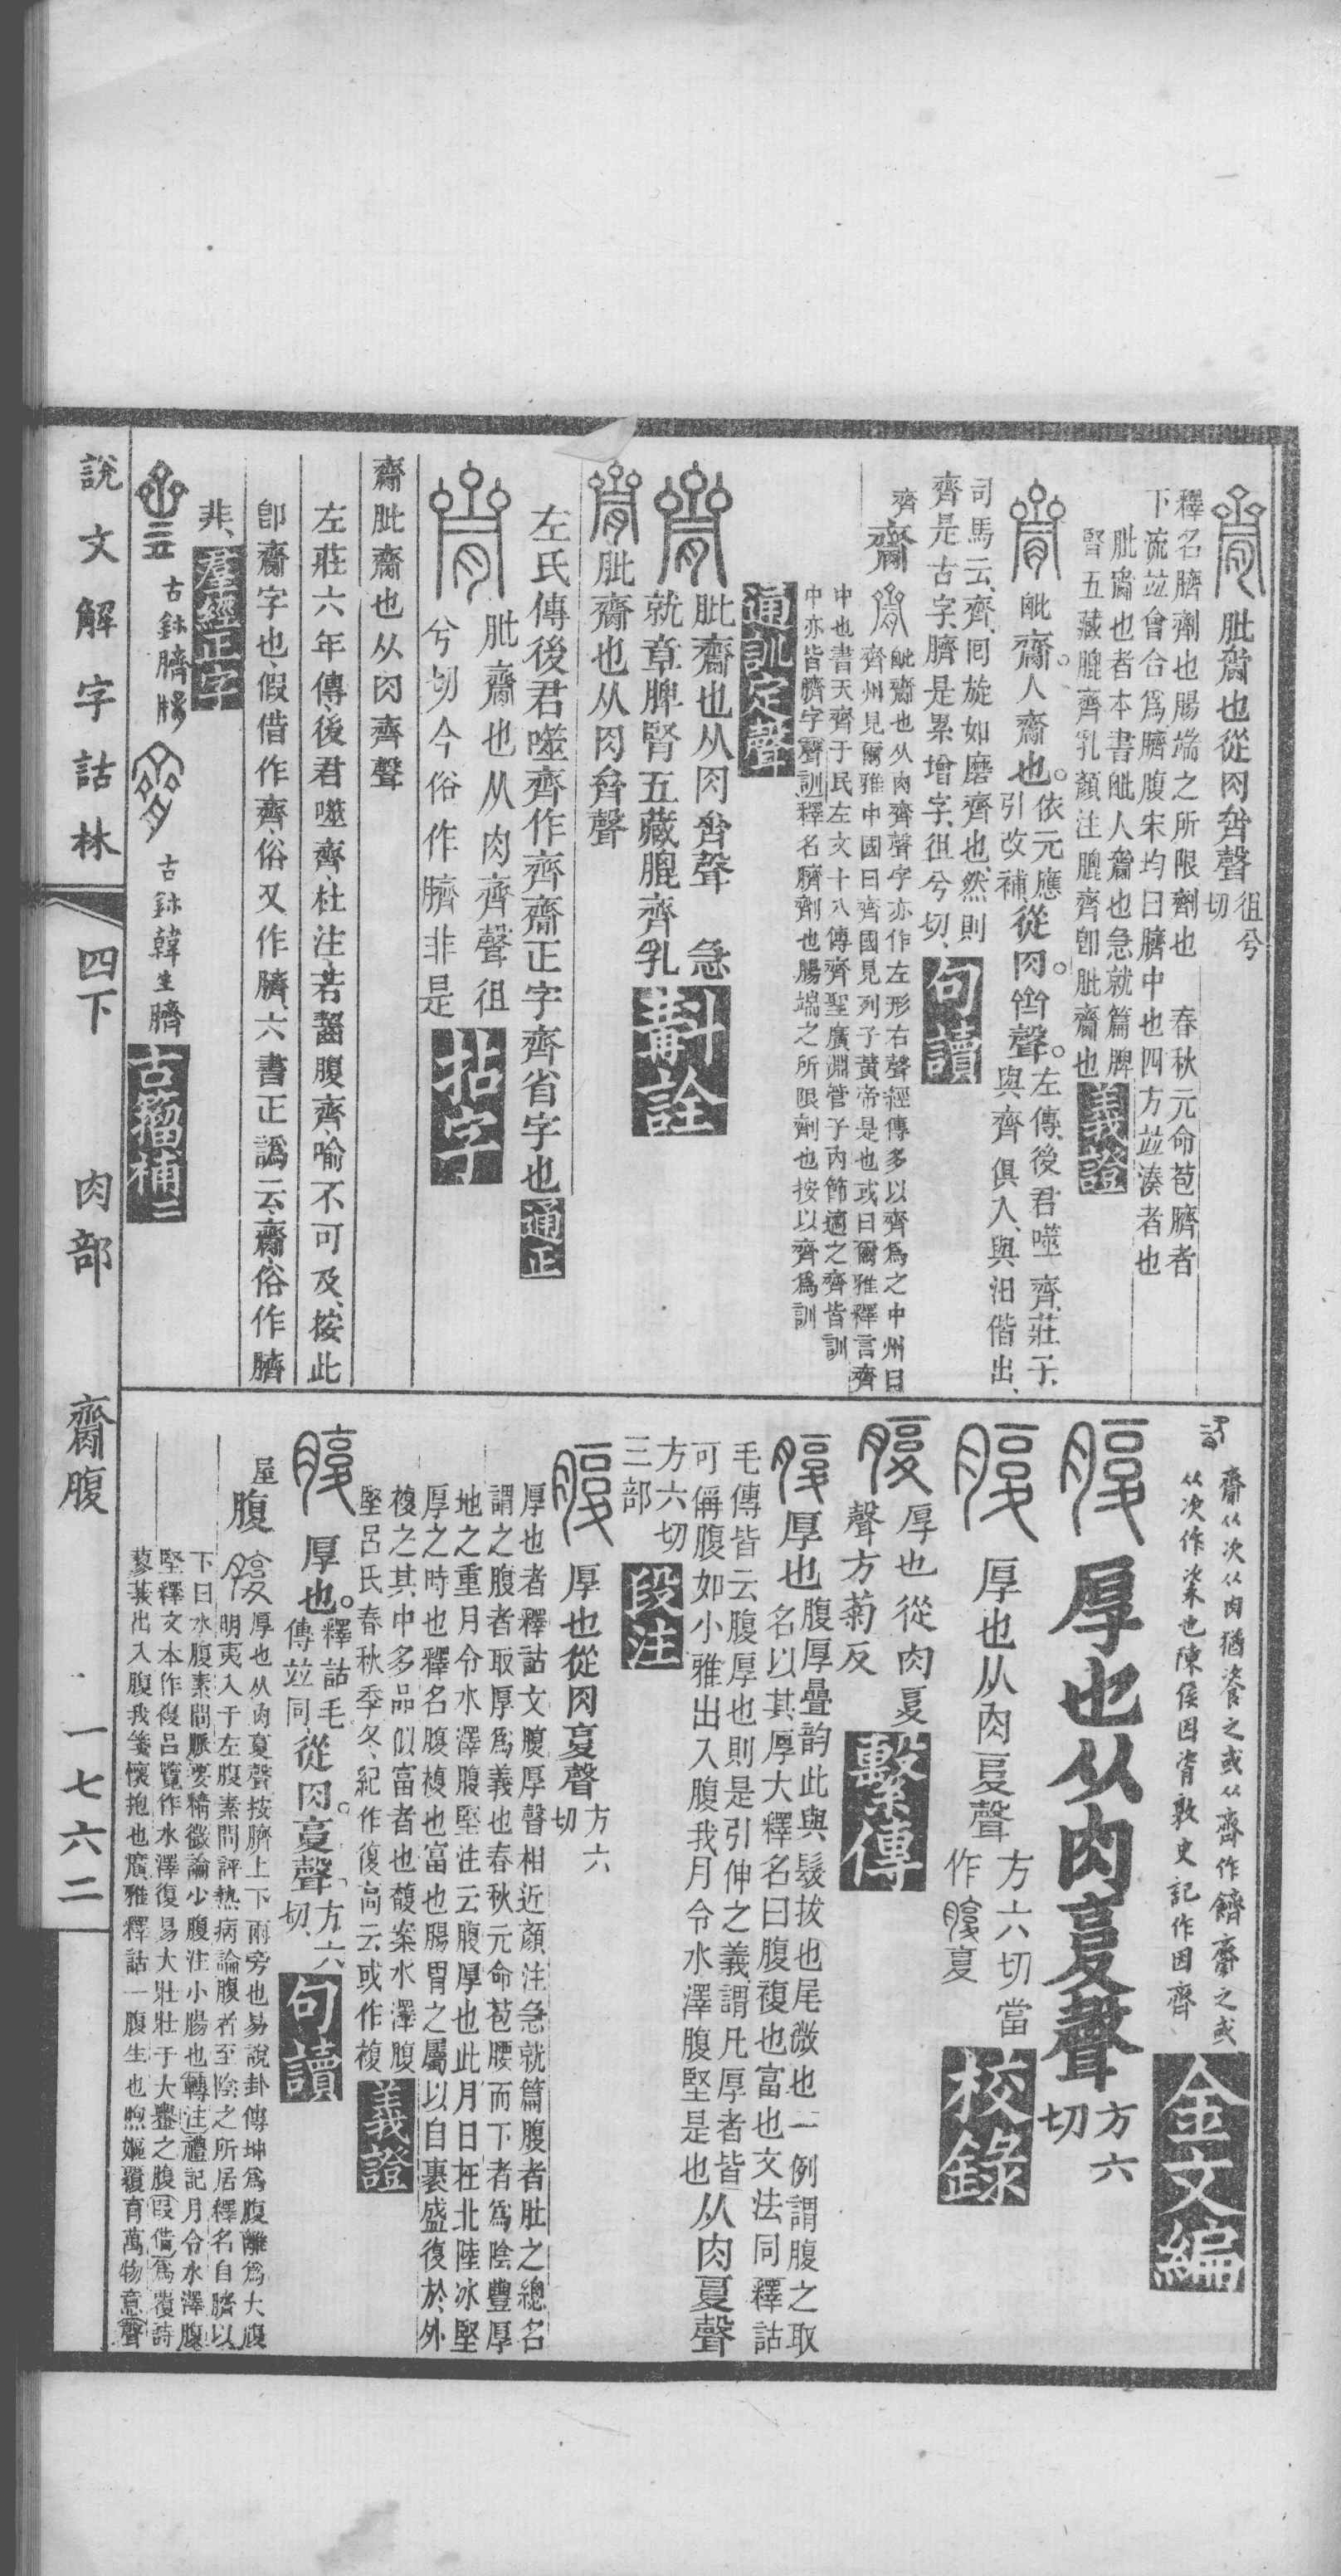 肶𪗆也從肉𠫼聲徂兮切
釋名臍劑也腸端之所限劑也 春秋元命苞臍者
下流竝會合爲臍腹宋均曰臍中也四方竝湊者也
肶𪗆也者本書毗人𪗆也急就篇脾
腎五藏膍齊乳顏注膍齊卽肶𪗆也
義證
毗𪗆。人𪗆也。依元應引改補、從肉。𠫼聲。左傳、後君噬齊、莊子、
與齊俱入、與汨偕出、
司馬云、齊、回旋如磨齊也、然則
齊是古字、臍是累增字、徂兮切、
句讀
齊
𪗆毗𪗆也从肉齊聲字亦作左形右聲經傳多以齊爲之中州曰
齊州見爾雅中國曰齊國見列子黃帝是也或曰爾雅釋言齊
中也書天齊于民左文十八傳齊聖廣淵管子內節適之齊皆訓
中亦皆臍字聲訓釋名臍劑也腸端之所限劑也按以齊爲訓
通訓定聲
肶𪗆也从肉𠫼聲 急
就章脾腎五藏膍齊乳
斠詮
肶𪗆也从肉𠫼聲
左氏傳後君噬齊作齊𪗆正字齊省字也
通正
肶𪗆也从肉齊聲徂
兮切今俗作臍非是
拈字
𪗆肶𪗆也从肉齊聲
左莊六年傳、後君噬齊、杜注、若齧腹齊、喻不可及、按此
卽𪗆字也、假借作齊、俗又作臍、六書正譌云、𪗆、俗作臍
非、
羣經正字
古鉥臍𦞦
古鉥韓生臍
古籀補二
𪗆从次从肉猶餈之或从齊作䭣𪗋之或
从次作粢也陳侯因𦙼敦史記作因齊
金文編
厚也从肉复聲方六切
厚也从肉复聲方六切當
作复
校錄
厚也從肉复
聲方菊反
繫傳
厚也腹厚疊韵此與髮拔也尾微也一例謂腹之取
名以其厚大釋名曰腹複也富也文法同釋詁
毛傳皆云腹厚也則是引伸之義謂凡厚者皆从肉复聲
可偁腹如小雅出入腹我月令水澤腹堅是也
方六切
三部
段注
厚也從肉复聲方六切
厚也者釋詁文腹厚聲相近顏注急就篇腹者肚之總名
謂之腹者取厚爲義也春秋元命苞腰而下者爲陰豐厚
地之重月令水澤腹堅注云腹厚也此月日在北陸冰堅
厚之時也釋名腹複也富也腸胃之屬以自裹盛復於外
複之其中多品似富者也馥案水澤腹
堅呂氏春秋季冬、紀作復高云或作複
義證
厚也。釋詁毛傳竝同、從肉。复聲、方六切、
句讀
屋
腹厚也从肉复聲按臍上下兩旁也易說卦傳坤爲腹離爲大腹
明夷入于左腹素問評熱病論腹者至陰之所居釋名自臍以
下曰水腹素問脈要精微論少腹注小腸也轉注禮記月令水澤腹
堅釋文本作複呂覽作水澤復易大壯壯于大轝之腹叚借爲覆詩
蓼莪出入腹我箋懷抱也廣雅釋詁一腹生也煦嫗覆育萬物意聲
說文解字詁林
四下
肉部
𪗆腹
一七六二